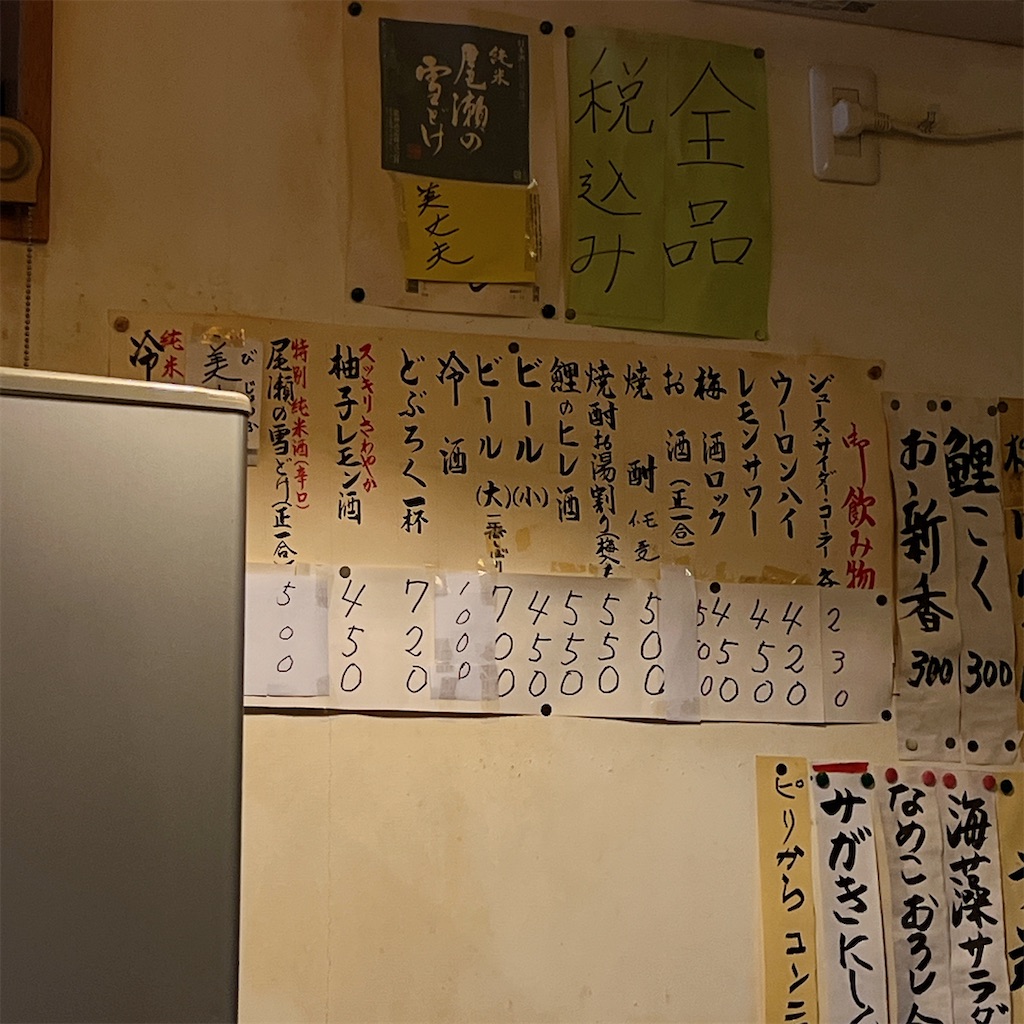 純米
尾瀬の
雪どけ
美丈夫
全品
税込み
御飲み物
ジュース・サイダー・コーラー
230
ウーロンハイ
420
レモンサワー
450
梅酒ロック
450
お酒(正一合)
500
焼酎
500
焼酎お湯割り
550
鯉のヒレ酒
550
ビール(小)
450
ビール(大)
700
冷酒
1000
どぶろく一杯
720
スッキリさわやか
柚子レモン酒
450
特別純米酒(辛口)
尾瀬の雪どけ(正一合)
500
美
純米
冷
鯉こく 300
お新香 300
海藻サラダ
なめこおろし
サガキにし
ピりからコンニ